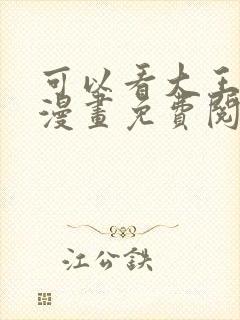 可以看大王
漫畫免費閱
江公鉄